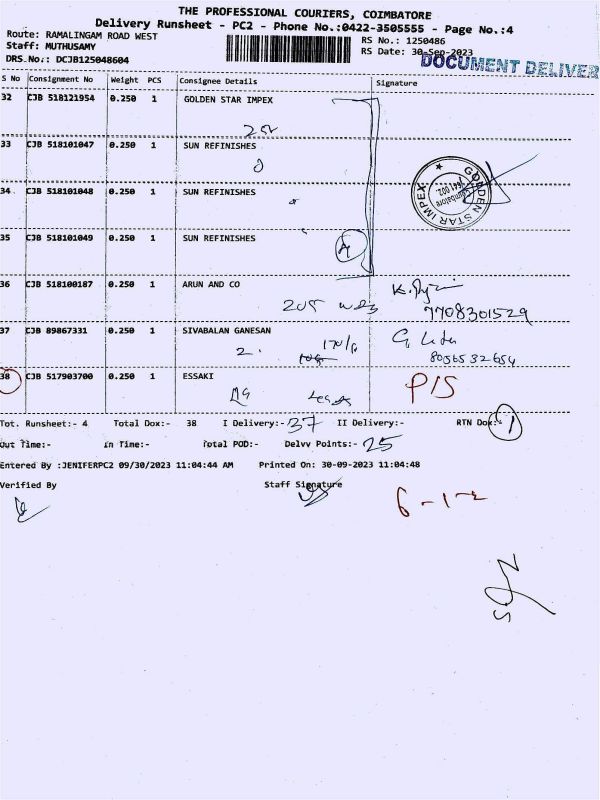 THE PROFESSIONAL COURIERS, COIMBATORE
Delivery Runsheet - PC2 - Phone No.:0422-3505555 - Page No.:4
Route: RAMALINGAM ROAD WEST
RS No.: 1250486
Staff: MUTHUSAMY
RS Date: 30-Sep-2023
DRS.No.: DCJB125048604
DOCUMENT DELIVER
S No Consignment No Weight PCS Consignee Details Signature
32 CJB 518121954 0.250 1 GOLDEN STAR IMPEX
33 CJB 518101047 0.250 1 SUN REFINISHES
34 CJB 518101048 0.250 1 SUN REFINISHES
GOLDEN STAR IMPEX
Coimbatore
35 CJB 518101049 0.250 1 SUN REFINISHES
4
36 CJB 518100187 0.250 1 ARUN AND CO
7708301529
37 CJB 89867331 0.250 1 SIVABALAN GANESAN
2.
8056532654
38 CJB 517903700 0.250 1 ESSAKI
P/S
Tot. Runsheet:- 4 Total Dox:- 38 I Delivery:- 37 II Delivery:- RTN Dox:- 1
Out Time:- In Time:- Total POD:- Delvv Points:- 25
Entered By :JENIFERPC2 09/30/2023 11:04:44 AM Printed On: 30-09-2023 11:04:48
Verified By Staff Signature
6-1-2